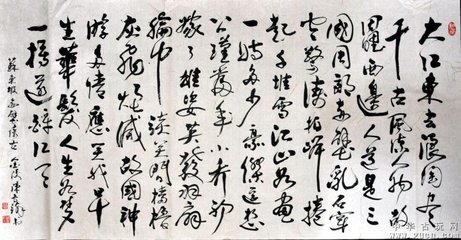 大江東去浪淘盡
千古風流人物故
壘西邊人道是三
國周郎赤壁乱石穿
空驚濤拍岸捲
起千堆雪江山如畫
一時多少豪傑遥想
公瑾當年小喬初
嫁了雄姿英發羽扇
綸巾談笑間檣櫓
灰飛煙滅故國神
遊多情應笑我早
生華髮人生如夢
一樽還酹江月
蘇東坡赤壁懷古
中华古玩网
www.gucn.com